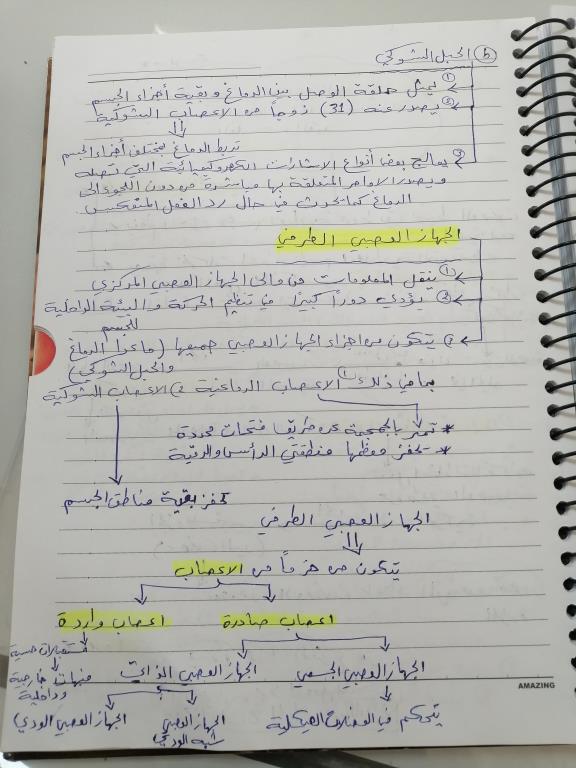 b) الحبل الشوكي
① يمثل حلقة الوصل بين الدماغ وبقية أجزاء الجسم
② يصدر عنه (31) زوجاً من الاعصاب الشوكية
تربط الدماغ بمختلف أجزاء الجسم
③ يعالج بعض أنواع الاشارات الكهروكيميائية التي تصله
ويصدر الاوامر المتعلقة بها مباشرة من دون اللجوء الى
الدماغ كما يحدث في حال رد الفعل المنعكس
الجهاز العصبي الطرفي
① ينقل المعلومات من والى الجهاز العصبي المركزي
② يؤدي دوراً كبيراً في تنظيم الحركة والبيئة الداخلية
للجسم
③ يتكون من اجزاء الجهاز العصبي جميعها (ما عدا الدماغ
والحبل الشوكي)
بما في ذلك ① الاعصاب الدماغية ② الاعصاب الشوكية
* تمر بالجمجمة عن طريق فتحات محددة
* تحفز معظمها منطقتي الرأس والرقبة
تحفز بقية مناطق الجسم
الجهاز العصبي الطرفي
يتكون من حزماً من الاعصاب
اعصاب صادرة
اعصاب واردة
مستقبلات حسية
الجهاز العصبي الجسمي
الجهاز العصبي الذاتي
منبهات خارجية
وداخلية
AMAZING
يتحكم في العضلات الهيكلية
الجهاز العصبي
شبه الودي
الجهاز العصبي الودي